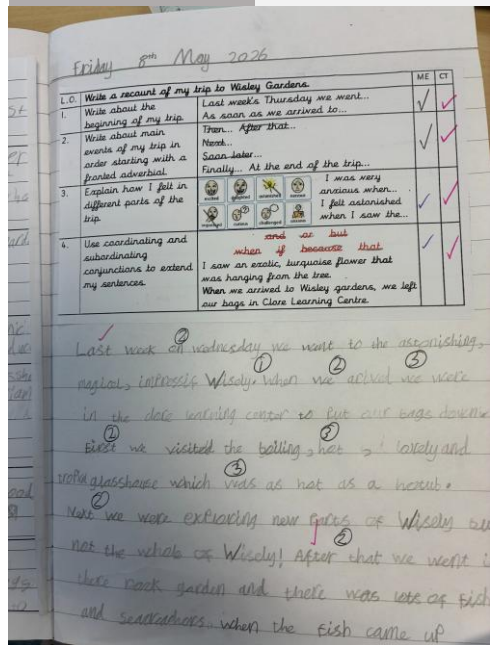 Friday 8th May 2026
ME CT
L.O. Write a recount of my trip to Wisley Gardens
1. Write about the beginning of my trip
Last week's Thursday we went...
As soon as we arrived to...
2. Write about main events of my trip in order starting with a fronted adverbial
Then... After that...
Next...
Soon later...
Finally... At the end of the trip...
3. Explain how I felt in different parts of the trip
I was very anxious when...
I felt astonished when I saw the...
4. Use coordinating and subordinating conjunctions to extend my sentences.
and or but
when if because that
I saw an exotic, turquoise flower that was hanging from the tree.
When we arrived to Wisley gardens, we left our bags in Clore Learning Centre.
Last week on wednesday we went to the astonishing,
magical, Wisely. when we arived we were
in the clore center to put our bags
First we visited the boiling, hot, lovely and
glasshouse which was as hot as a
Next we were exploring new parts of Wisely
not the whole of Wisely! After that we went
there rock garden and there was lots of fish
and when the fish came up